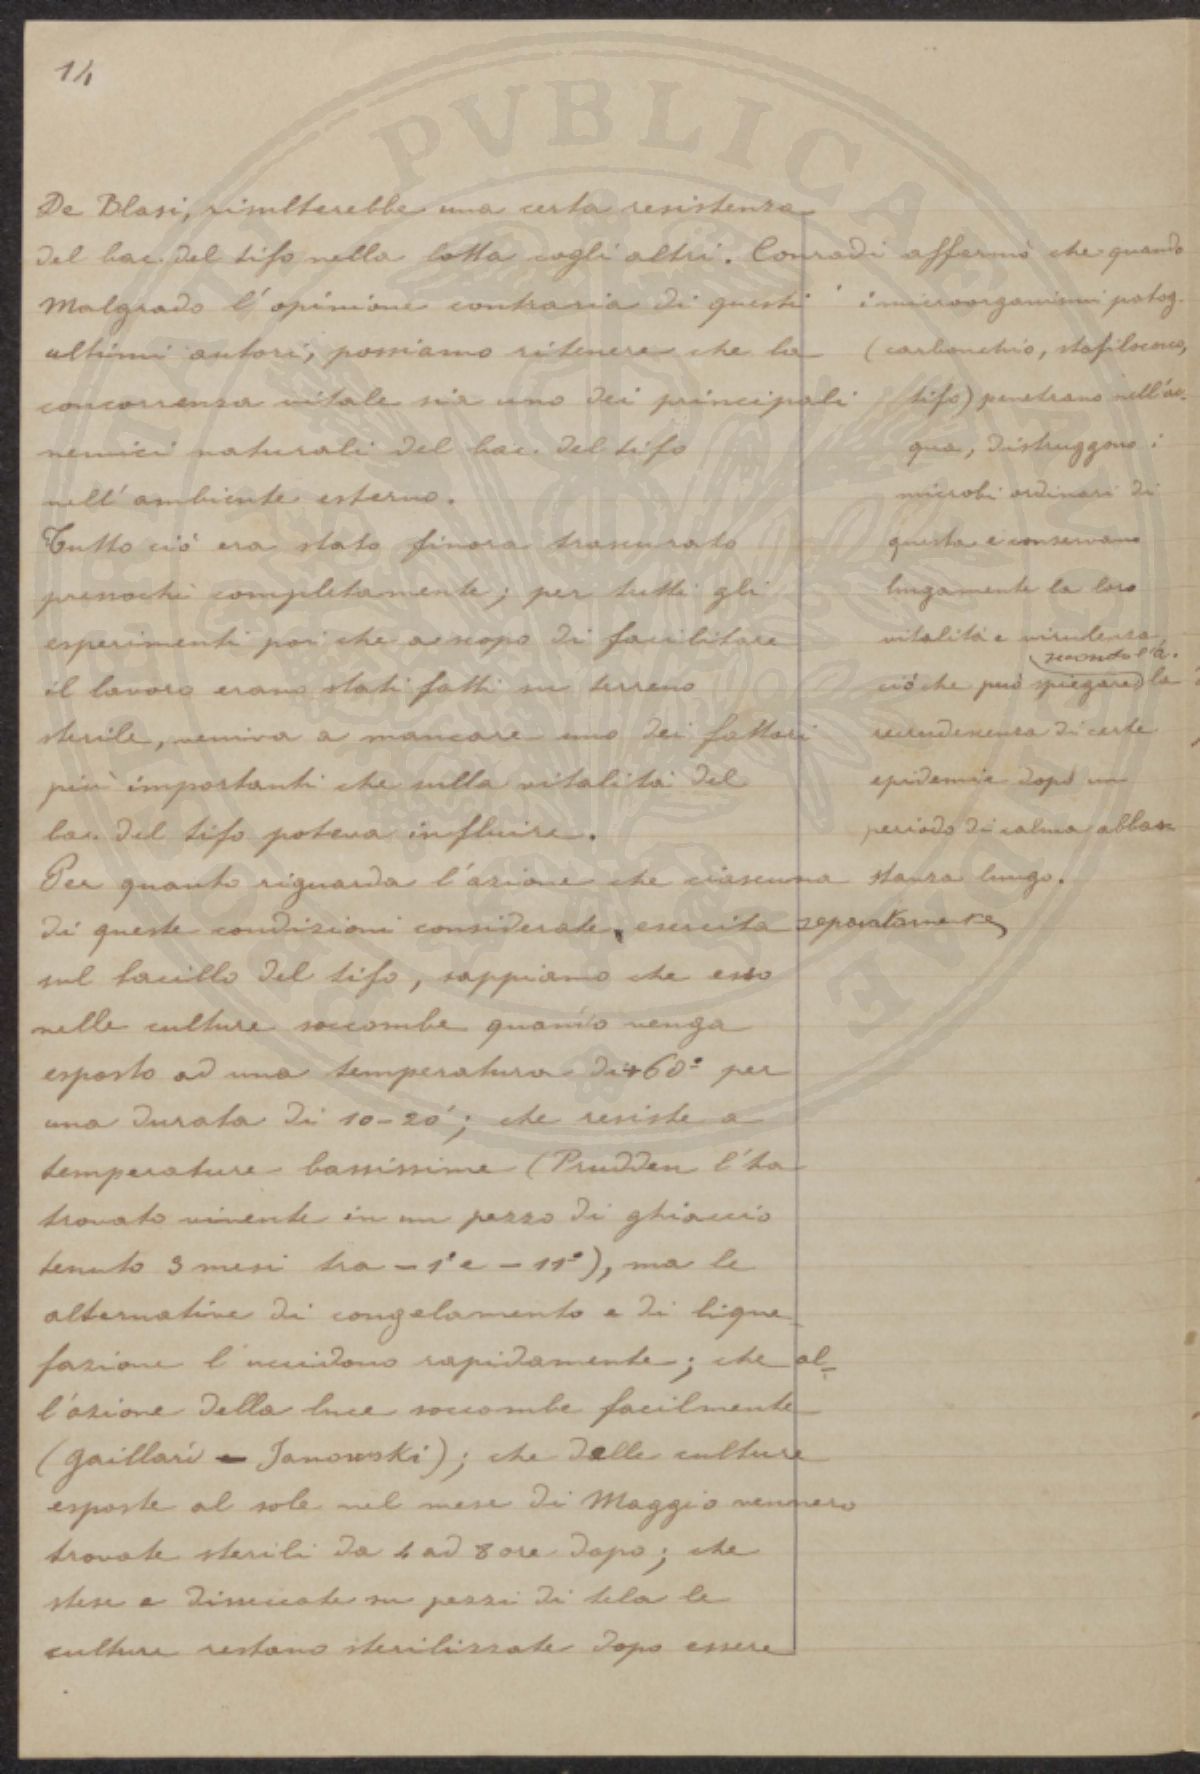 14
De Blasi, risulterebbe una certa resistenza
del bac. del tifo nella lotta cogli altri.
Malgrado l'opinione contraria di questi
ultimi autori, possiamo ritenere che la
concorrenza vitale sia uno dei principali
nemici naturali del bac. del tifo
nell'ambiente esterno.
Tutto ciò era stato finora trascurato
pressochè completamente; per tutti gli
esperimenti poi che a scopo di facilitare
il lavoro erano stati fatti su terreno
sterile, veniva a mancare uno dei fattori
più importanti che sulla vitalità del
bac. del tifo poteva influire.
Per quanto riguarda l'azione che ciascuna
di queste condizioni considerate esercita separatamente
sul bacillo del tifo, sappiamo che esso
nelle culture soccombe quando venga
esposto ad una temperatura di +60° per
una durata di 10-20'; che resiste a
temperature bassissime (Prudden l'ha
trovato vivente in un pezzo di ghiaccio
tenuto 3 mesi tra -1° e -11°), ma le
alternative di congelamento e di lique-
fazione l'uccidono rapidamente; che al-
l'azione della luce soccombe facilmente
(Gaillard - Janowski); che delle culture
esposte al sole nel mese di Maggio vennero
trovate sterili da 4 ad 8 ore dopo; che
stese e disseccate su pezzi di tela le
culture restano sterilizzate dopo essere
Conradi affermò che quando
i microorganismi patog.
(carbonchio, stafilococco,
tifo) penetrano nell'ac-
qua, distruggono i
microbi ordinari di
questa e conservano
lungamente la loro
vitalità e virulenza,
secondo l'A.
ciò che può spiegare la
recrudescenza di certe
epidemie dopo un
periodo di calma abba-
stanza lungo.
PVBLICAE